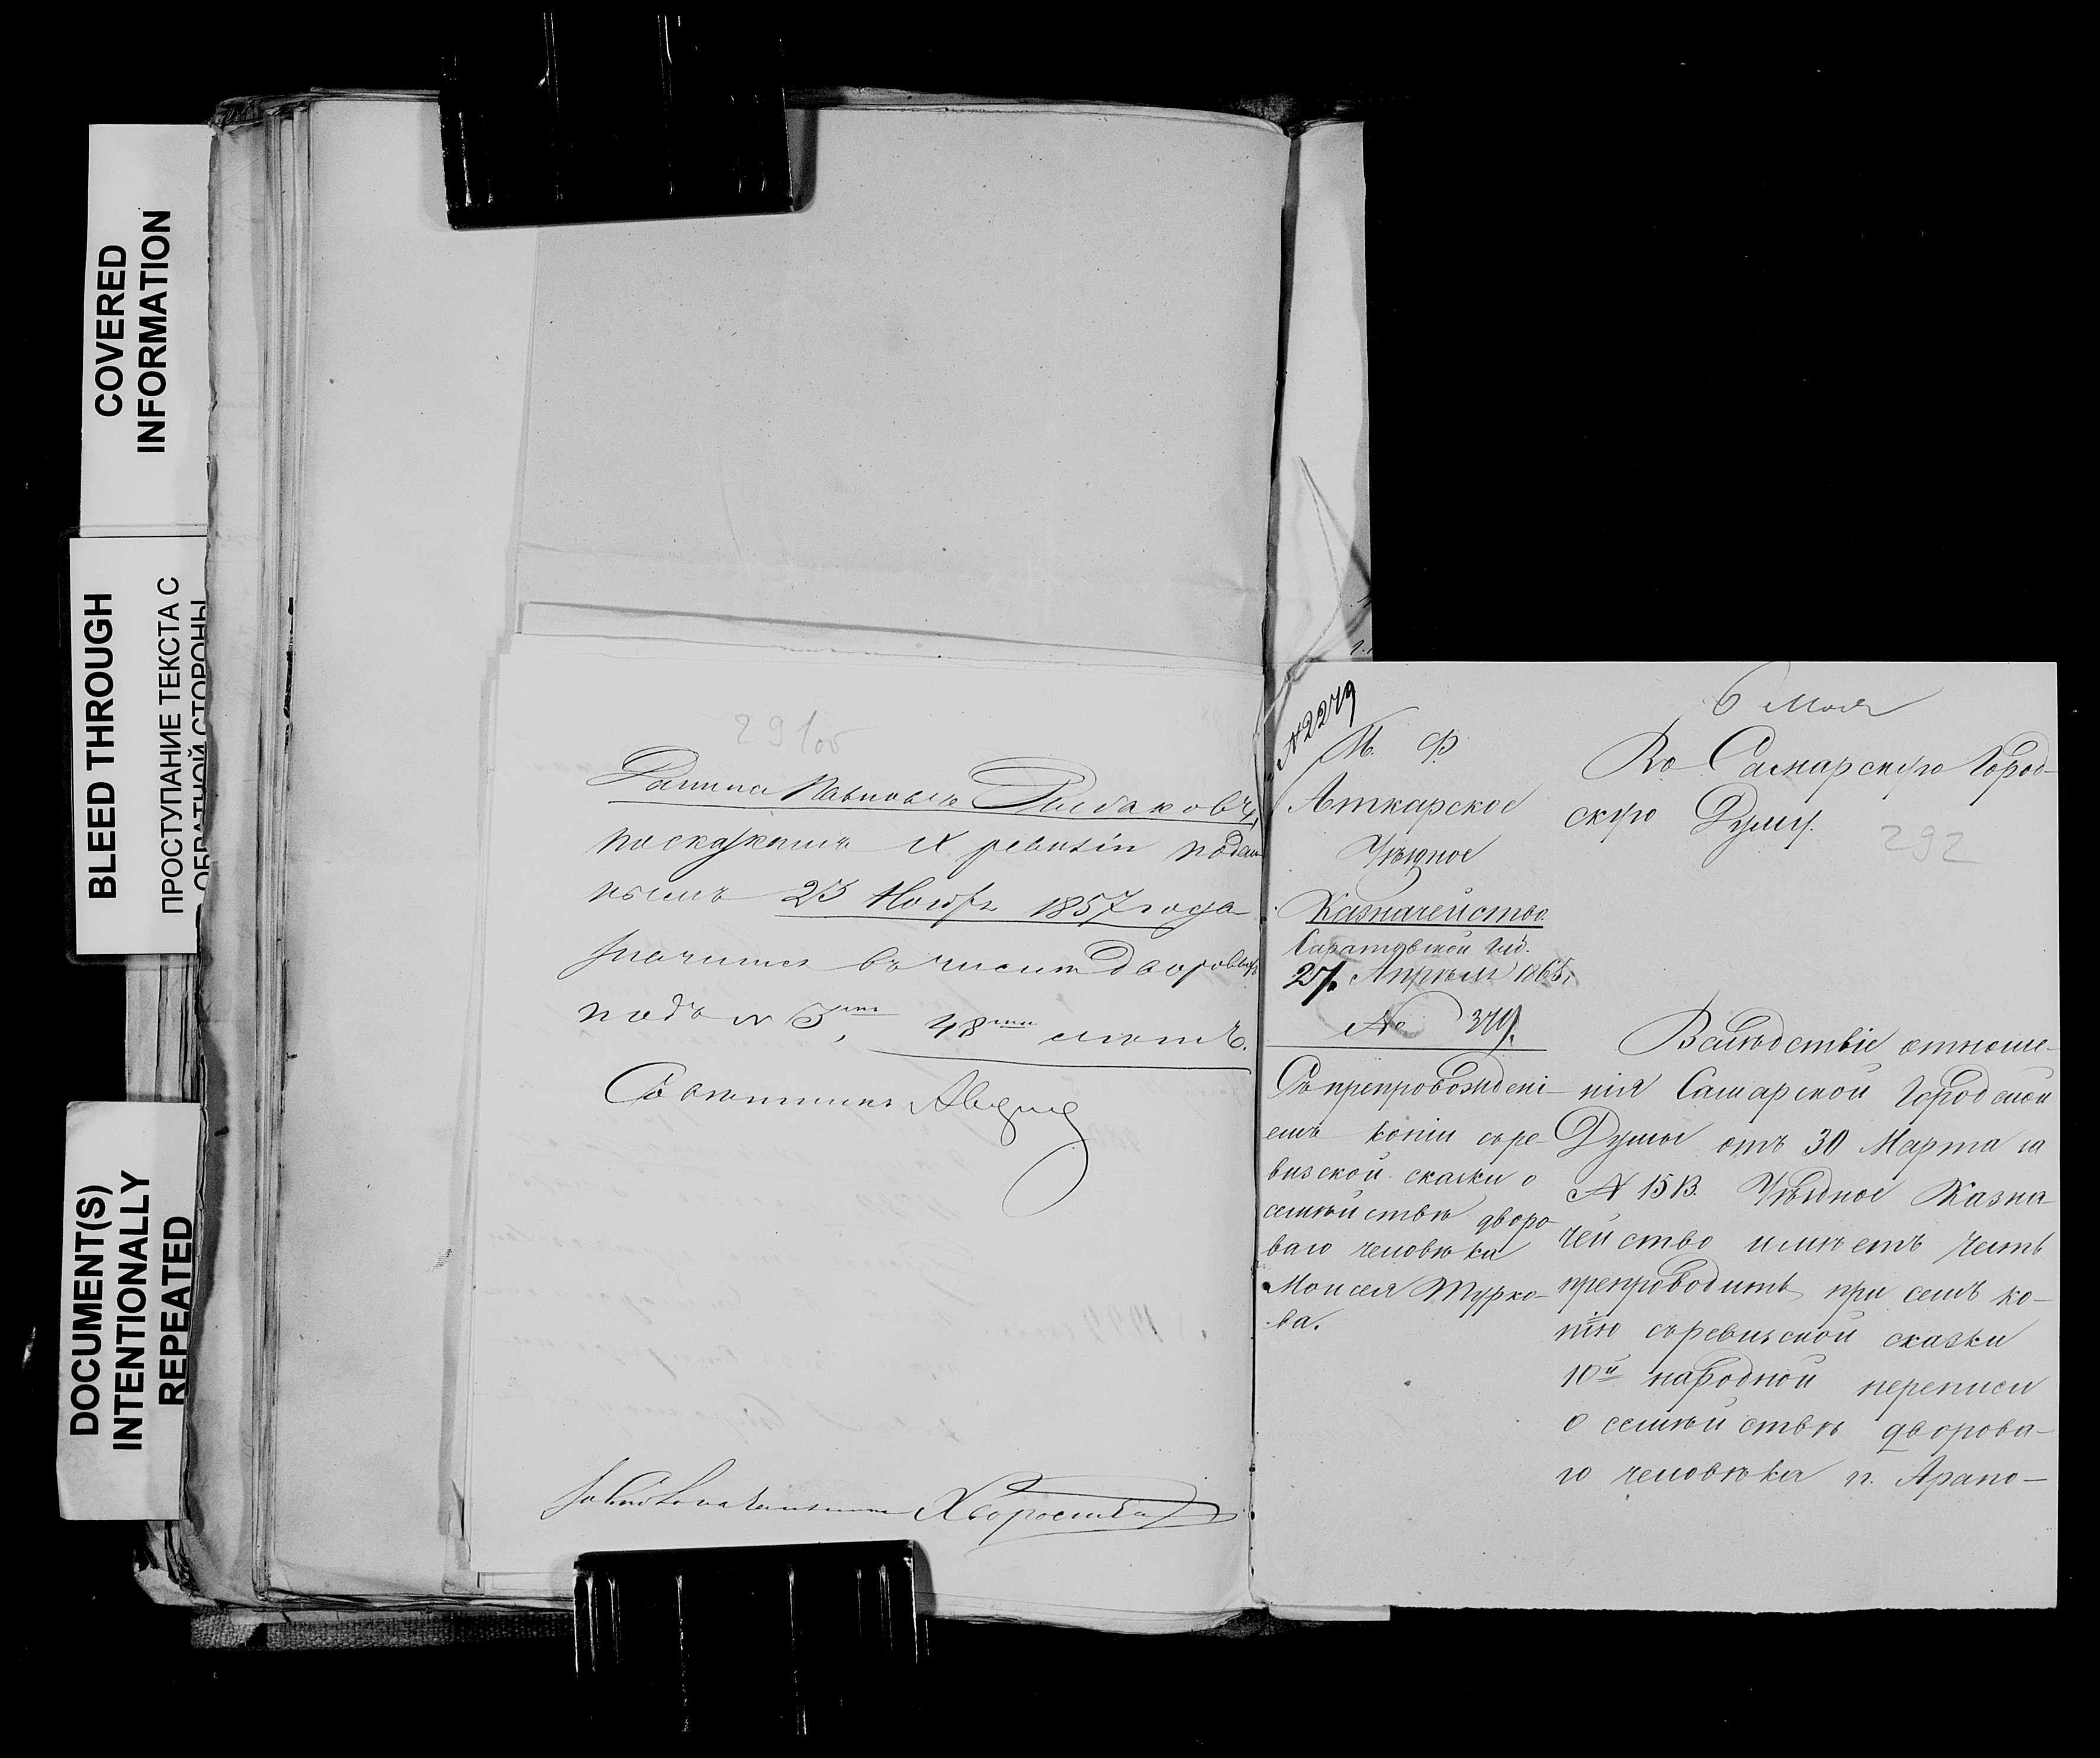 COVERED
INFORMATION
BLEED THROUGH
ПРОСТУПАНИЕ ТЕКСТА С
ОБРАТНОЙ СТОРОНЫ
DOCUMENT(S)
INTENTIONALLY
REPEATED
291об
по сказкамъ X ревизіи подан
нымъ 23 Ноябр. 1857 года
значится въ числѣ дворовыхъ
подъ № 5, 48 лѣтъ.
Совѣтникъ
№ 2279
М. Ф.
Аткарское
Уѣздное
Казначейство
Саратовской Губ.
27. Апрѣля 1865
№ 379.
Съ препровожденi-
емъ копіи съ ре-
визской сказки о
семѣйствѣ дворо
ваго человѣка
Моисея Турко-
ва.
6 Мая
Въ Самарскую Город-
скую Думу.
292
Вслѣдствіе отноше-
нія Самарской Городской
Думы отъ 30 Марта за
№ 1513. Уѣздное Казна
чейство имѣетъ честь
препроводить при семъ ко-
пію съ ревизской сказки
10й народной переписи
о семѣйствѣ дворова-
го человѣка г. Арапо-